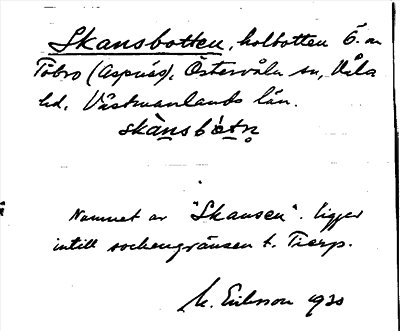 Skansbotten, holbotten Ö. om
Tobro (Aspnäs), Östervåla sn, Våla
hd, Västmanlands län.
skànsbòtn̥
Namnet av "Skansen". Ligger
intill sockengränsen t. Tierp.
M. Eriksson 1930